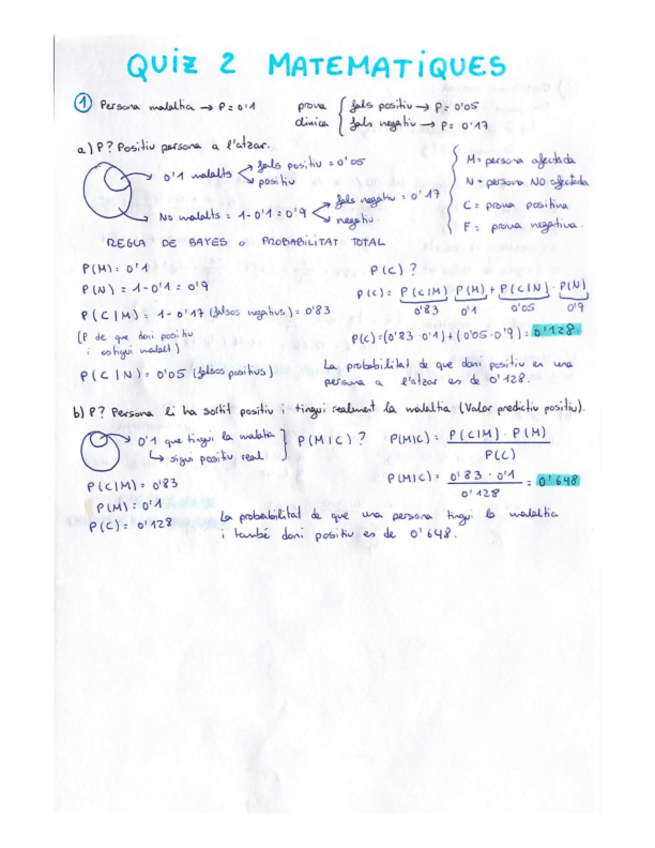 QUIZ 2 MATEMATIQUES
① Persona malaltia → P = 0'1
prova clinica { fals positiu → P = 0'05
fals negatiu → P = 0'17
a) P? Positiu persona a l'atzar.
0'1 malalts
fals positiu = 0'05
positiu
No malalts = 1-0'1 = 0'9
fals negatiu = 0'17
negatiu.
M = persona afectada
N = persona NO afectada
C = prova positiva
F = prova negativa.
REGLA DE BAYES o PROBABILITAT TOTAL
P(M) = 0'1
P(N) = 1-0'1 = 0'9
P(C|M) = 1-0'17 (falsos negatius) = 0'83
(P de que doni positiu
i estigui malalt)
P(C|N) = 0'05 (falsos positius)
P(C) ?
P(C) = P(C|M) · P(M) + P(C|N) · P(N)
0'83 0'1 0'05 0'9
P(C) = (0'83 · 0'1) + (0'05 · 0'9) = 0'128.
La probabilitat de que doni positiu en una
persona a l'atzar es de 0'128.
b) P? Persona li ha sortit positiu i tingui realment la malaltia (Valor predictiu positiu).
0'1 que tingui la malaltia
↳ sigui positiu real
P(M|C) ?
P(M|C) = P(C|M) · P(M)
P(C)
P(C|M) = 0'83
P(M) = 0'1
P(C) = 0'128
P(M|C) = 0'83 · 0'1 = 0'648
0'128
La probabilitat de que una persona tingui la malaltia
i també doni positiu es de 0'648.